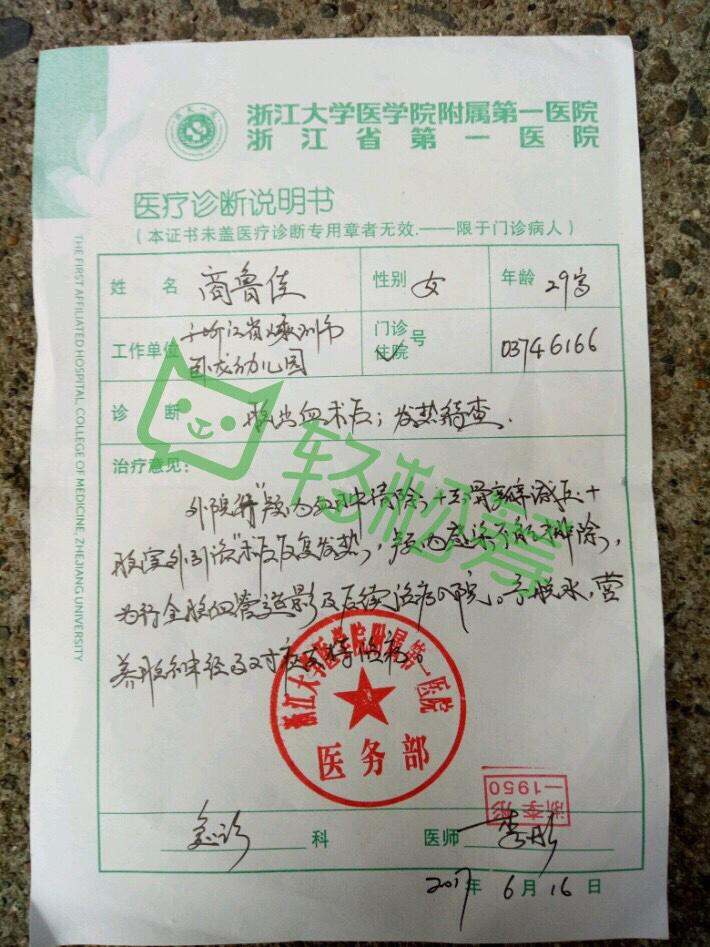 浙江大学医学院附属第一医院
浙江省第一医院
医疗诊断说明书
(本证书未盖医疗诊断专用章者无效.——限于门诊病人)
姓 名 商鲁佳 性别 女 年龄 29岁
工作单位 浙江省 市
卧龙幼儿园
门诊
住院 号 03746166
诊 断 脑出血术后；发热待查.
治疗意见：
外院行"颅内血肿清除，+去骨瓣减压+
脑室外引流"术后反复发热，颅内感染不能排除，
为行全脑血管造影及后续治疗入院。予脱水，营
养脑神经及对症支持治疗。
浙江大学医学院附属第一医院
医务部
浙李彤
—1950
急诊 科 医师 李彤
2017年 6月 16日
THE FIRST AFFILIATED HOSPITAL, COLLEGE OF MEDICINE, ZHEJIANG UNIVERSITY
轻松筹